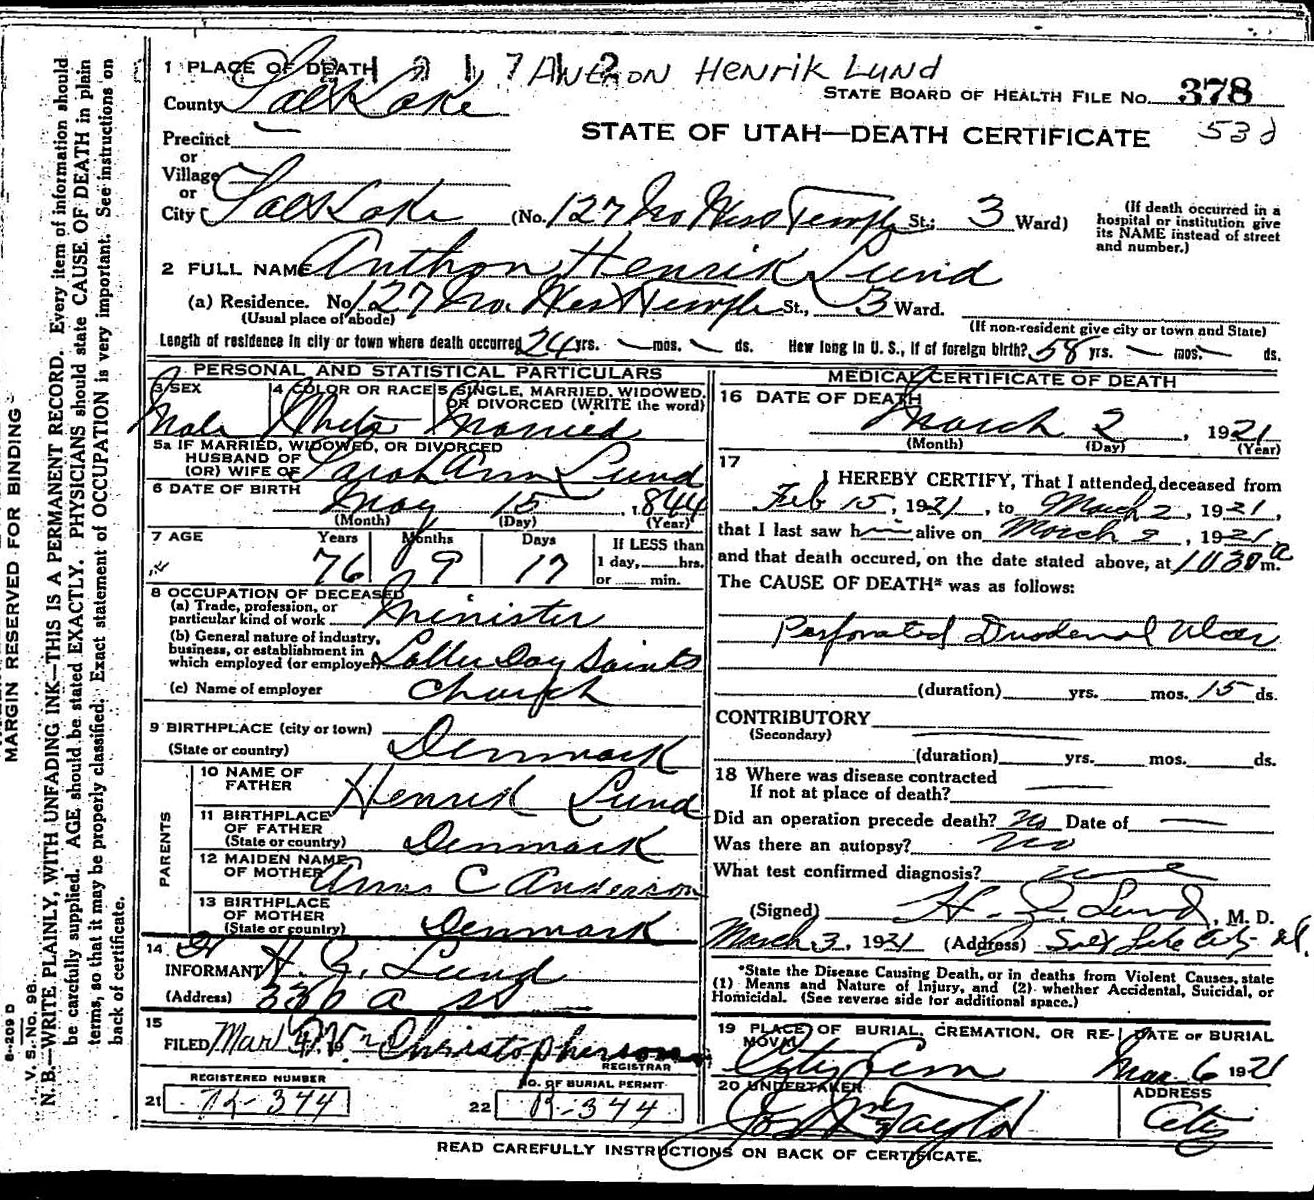 1 PLACE OF DEATH 1 2 1 7 1 2 ANTHON HENRIK LUND
County Salt Lake STATE BOARD OF HEALTH FILE No. 378
Precinct STATE OF UTAH—DEATH CERTIFICATE 53d
or
Village
or
City Salt Lake (No. 127 No West Temple St.; 3 Ward)
(If death occurred in a hospital or institution give its NAME instead of street and number.)
2 FULL NAME Anthon Henrik Lund
(a) Residence. No 127 No. West Temple St., 3 Ward.
(Usual place of abode) (If non-resident give city or town and State)
Length of residence in city or town where death occurred 24 yrs. — mos. — ds. How long in U. S., if of foreign birth? 58 yrs. — mos. — ds.
PERSONAL AND STATISTICAL PARTICULARS
3 SEX Male
4 COLOR OR RACE White
5 SINGLE, MARRIED, WIDOWED, OR DIVORCED (WRITE the word) Married
5a IF MARRIED, WIDOWED, OR DIVORCED
HUSBAND OF
(OR) WIFE OF Sarah Ann Lund
6 DATE OF BIRTH May 15, 1844
(Month) (Day) (Year)
7 AGE Years Months Days If LESS than
76 9 17 1 day,......hrs.
or ...... min.
8 OCCUPATION OF DECEASED
(a) Trade, profession, or
particular kind of work Minister
(b) General nature of industry,
business, or establishment in
which employed (or employer) Latter Day Saints
(c) Name of employer Church
9 BIRTHPLACE (city or town)
(State or country) Denmark
PARENTS
10 NAME OF
FATHER Henrik Lund
11 BIRTHPLACE
OF FATHER
(State or country) Denmark
12 MAIDEN NAME
OF MOTHER Anna C Anderson
13 BIRTHPLACE
OF MOTHER
(State or country) Denmark
14
INFORMANT H. C. Lund
(Address) 336 A St
15
FILED Mar Christopherson
REGISTRAR
REGISTERED NUMBER
21 R-344
NO. OF BURIAL PERMIT
22 R-344
MEDICAL CERTIFICATE OF DEATH
16 DATE OF DEATH
March 2, 1921
(Month) (Day) (Year)
17
I HEREBY CERTIFY, That I attended deceased from
Feb 15, 1921, to March 2, 1921,
that I last saw h— alive on March 2, 1921
and that death occured, on the date stated above, at 1030 a m.
The CAUSE OF DEATH* was as follows:
Perforated Duodenal Ulcer
(duration) yrs. mos. 15 ds.
CONTRIBUTORY
(Secondary)
(duration) yrs. mos. ds.
18 Where was disease contracted
If not at place of death? —
Did an operation precede death? No Date of —
Was there an autopsy? No
What test confirmed diagnosis?
(Signed) H. C. Lund, M. D.
March 3, 1921 (Address) Salt Lake City
*State the Disease Causing Death, or in deaths from Violent Causes, state
(1) Means and Nature of Injury, and (2) whether Accidental, Suicidal, or
Homicidal. (See reverse side for additional space.)
19 PLACE OF BURIAL, CREMATION, OR RE-
MOVAL City Cem
DATE OF BURIAL
Mar 6 1921
20 UNDERTAKER
Jos Wm Taylor
ADDRESS
City
READ CAREFULLY INSTRUCTIONS ON BACK OF CERTIFICATE.
MARGIN RESERVED FOR BINDING
N. B.—WRITE PLAINLY, WITH UNFADING INK—THIS IS A PERMANENT RECORD. Every item of information should
be carefully supplied. AGE should be stated EXACTLY. PHYSICIANS should state CAUSE OF DEATH in plain
terms, so that it may be properly classified. Exact statement of OCCUPATION is very important. See instructions on
back of certificate.
V. S. No. 98.
8-209 D